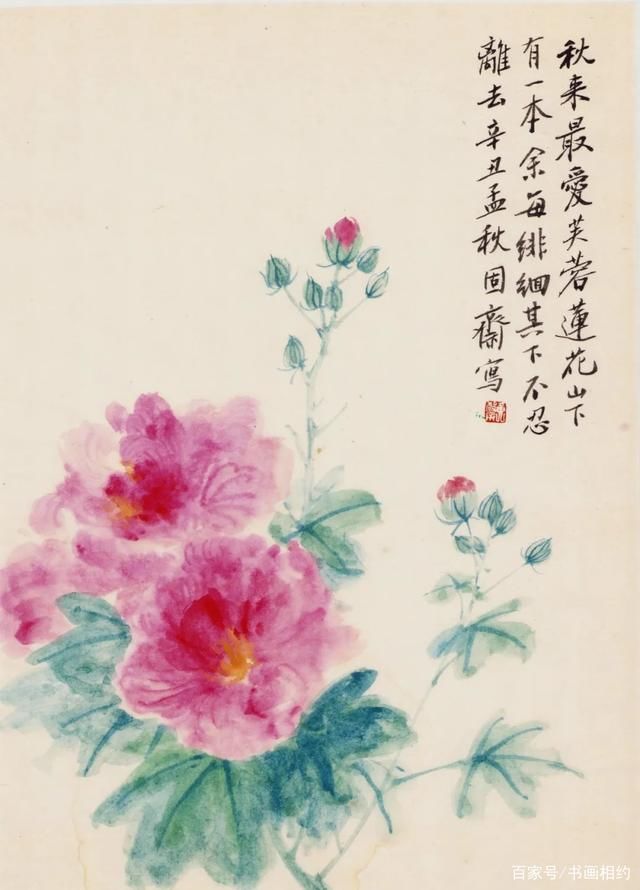 秋来最愛芙蓉蓮花山下
有一本余每緋緬其下不忍
離去辛丑孟秋固齋寫
百家号/书画相约